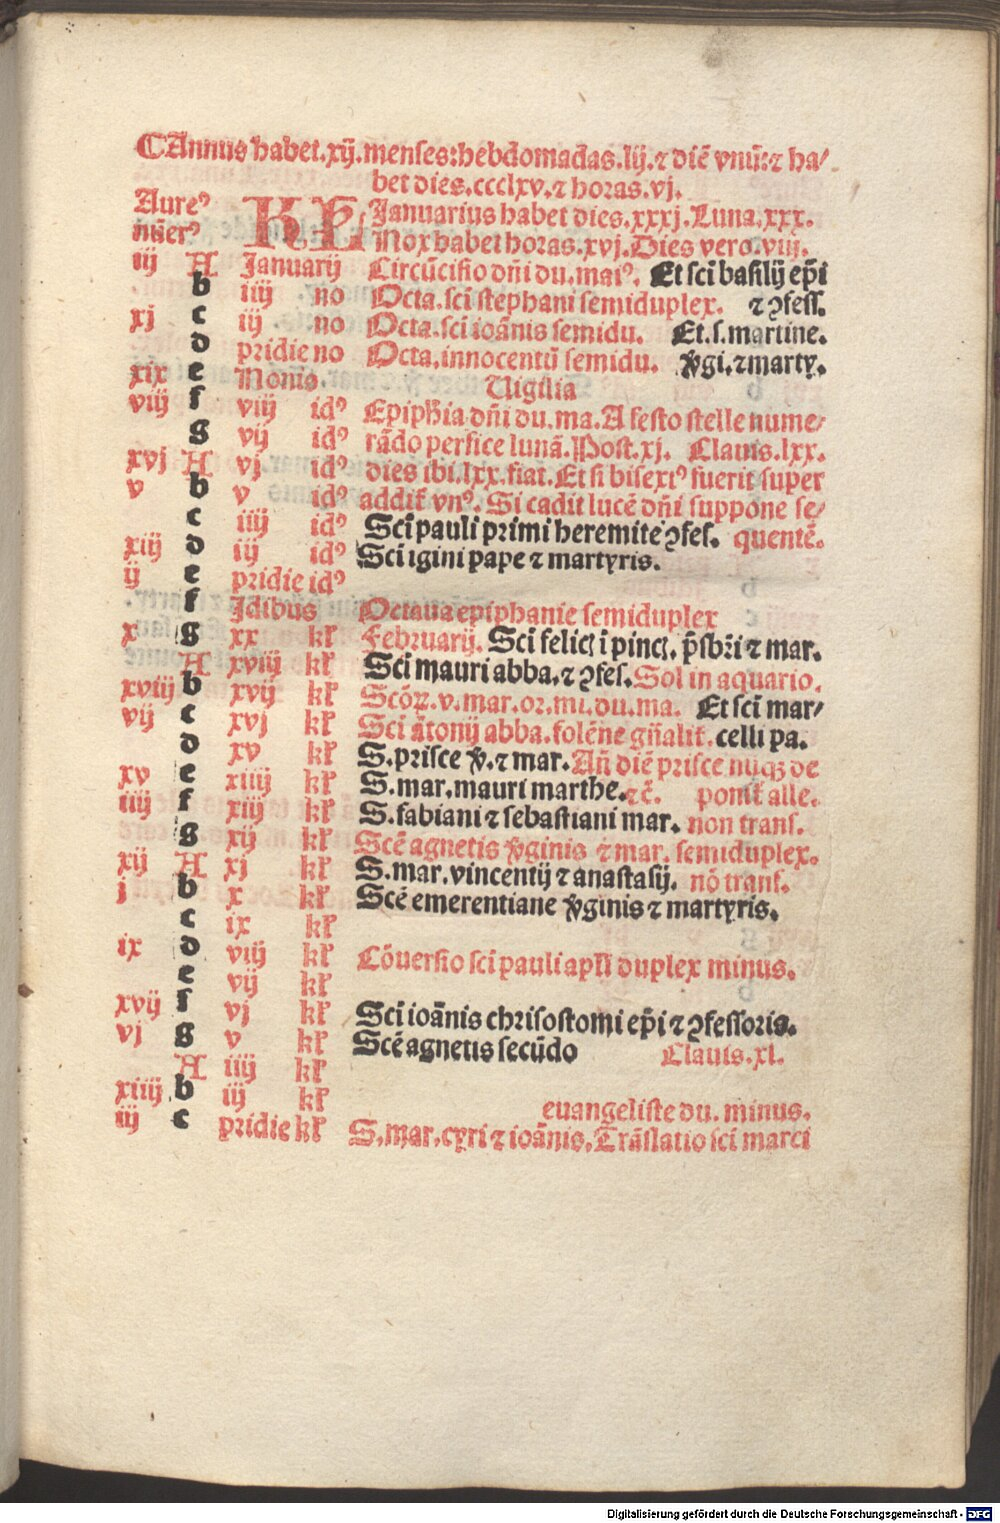 ¶Annus habet.xij.menses:hebdomadas.lij.⁊ diē vnū:⁊ ha/
bet dies.ccclxv.⁊ horas.vj.
Aureꝰ KL Januarius habet dies.xxxj.Luna.xxx.
nūerꝰ Nox habet horas.xvj.Dies vero.viij.
iij A Januarij Circūcisio dn̄i du.maiꝰ. Et sci basilij ep̄i
b iiij no Octa.sci stephani semiduplex. ⁊ ꝯfess.
xj c iij no Octa.sci ioānis semidu. Et.s.martine.
d pridie no Octa.innocentū semidu. v̄gi.⁊marty.
xix e Nonis Uigilia
viij f viij idꝰ Epiph̄ia dn̄i du.ma.A festo stelle nume/
g vij idꝰ rādo perfice lunā.Post.xj. Clauis.lxx.
xvj A vj idꝰ dies ibi.lxx.fiat.Et si bisextꝰ fuerit super
v b v idꝰ addit̄ vnꝰ. Si cadit lucē dn̄i suppone se/
c iiij idꝰ Sci pauli primi heremite ꝯfes. quentē.
xiij d iij idꝰ Sci igini pape ⁊ martyris.
ij e pridie idꝰ
f Jdibus Octaua epiphanie semiduplex
x g xx kl̄ Februarij. Sci felicꝭ ī pincꝭ. p̄sbr̄i ⁊ mar.
A xviij kl̄ Sci mauri abba.⁊ ꝯfes.Sol in aquario.
xviij b xvij kl̄ Scōꝝ.v.mar.or.mi.du.ma. Et sci mar/
vij c xvj kl̄ Sci ātonij abba.solēne gn̄alit̄.celli pa.
d xv kl̄ S.prisce v̄.⁊ mar.Añ diē prisce nūqꝫ de
xv e xiiij kl̄ S.mar.mauri marthe.⁊c̄. ponit̄ alle.
iiij f xiij kl̄ S.fabiani ⁊ sebastiani mar. non trans.
g xij kl̄ Scē agnetis v̄ginis ⁊ mar. semiduplex.
xij A xj kl̄ S.mar.vincentij ⁊ anastasij. nō trans.
j b x kl̄ Scē emerentiane v̄ginis ⁊ martyris.
c ix kl̄
ix d viij kl̄ Cōuersio sci pauli apl̄i duplex minus.
e vij kl̄
xvij f vj kl̄ Sci ioānis chrisostomi ep̄i ⁊ ꝯfessoris.
vj g v kl̄ Scē agnetis secūdo Clauis.xl.
A iiij kl̄
xiiij b iij kl̄ euangeliste du. minus.
iij c pridie kl̄ S.mar.cyri ⁊ ioānis.Trāslatio sci marci
Digitalisierung gefördert durch die Deutsche Forschungsgemeinschaft - DFG